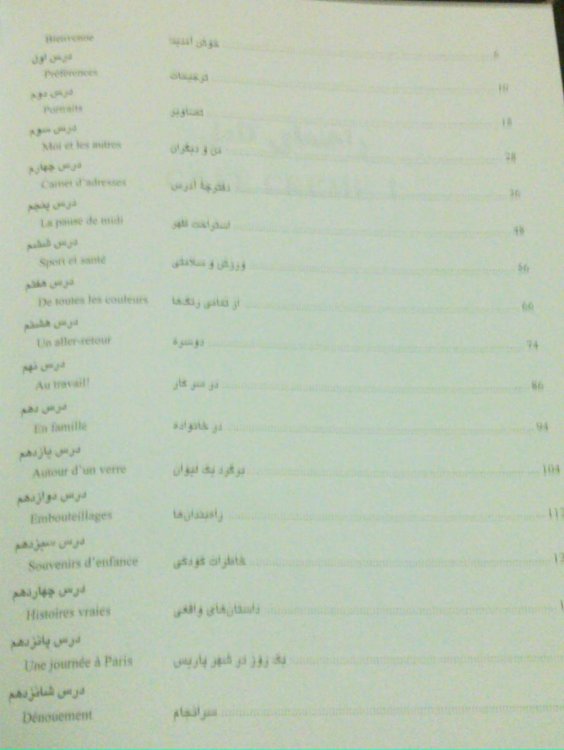 Bienvenue خوش آمدید 6
درس اول
Préférences ترجیحات 10
درس دوم
Portraits تصاویر 18
درس سوم
Moi et les autres من و دیگران 28
درس چهارم
Carnet d'adresses دفترچهٔ آدرس 36
درس پنجم
La pause de midi استراحت ظهر 48
درس ششم
Sport et santé ورزش و سلامتی 56
درس هفتم
De toutes les couleurs از تمامی رنگ‌ها 66
درس هشتم
Un aller-retour دوسره 74
درس نهم
Au travail! در سر کار 86
درس دهم
En famille در خانواده 94
درس یازدهم
Autour d'un verre برگرد یک لیوان 104
درس دوازدهم
Embouteillages راه‌بندان‌ها 11
درس سیزدهم
Souvenirs d'enfance خاطرات کودکی 1
درس چهاردهم
Histoires vraies داستان‌های واقعی 1
درس پانزدهم
Une journée à Paris یک روز در شهر پاریس
درس شانزدهم
Dénouement سرانجام